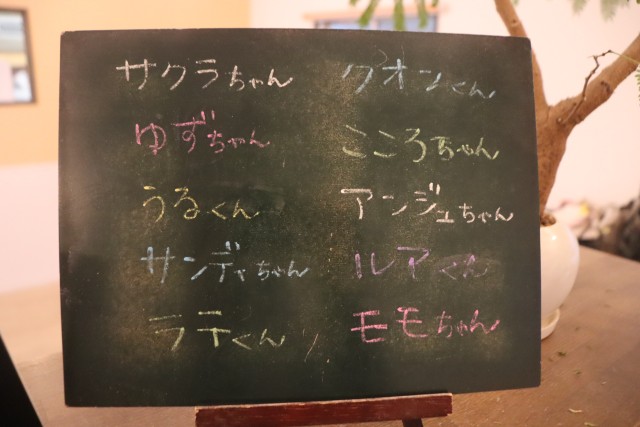 サクラちゃん クオンくん
ゆずちゃん こころちゃん
うるくん アンジュちゃん
サンディちゃん ルアくん
ラテくん モモちゃん